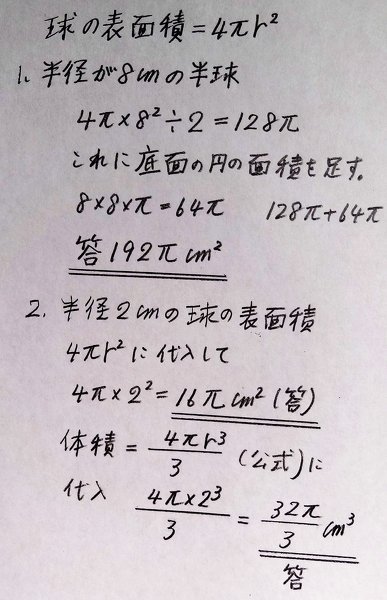 球の表面積=4πr²
1. 半径が8cmの半球
4π×8²÷2=128π
これに底面の円の面積を足す。
8×8×π=64π 128π+64π
答 192π cm²
2. 半径2cmの球の表面積
4πr²に代入して
4π×2²=16π cm² (答)
体積 = 4πr³/3 (公式)に
代入 4π×2³/3 = 32π/3 cm³
答